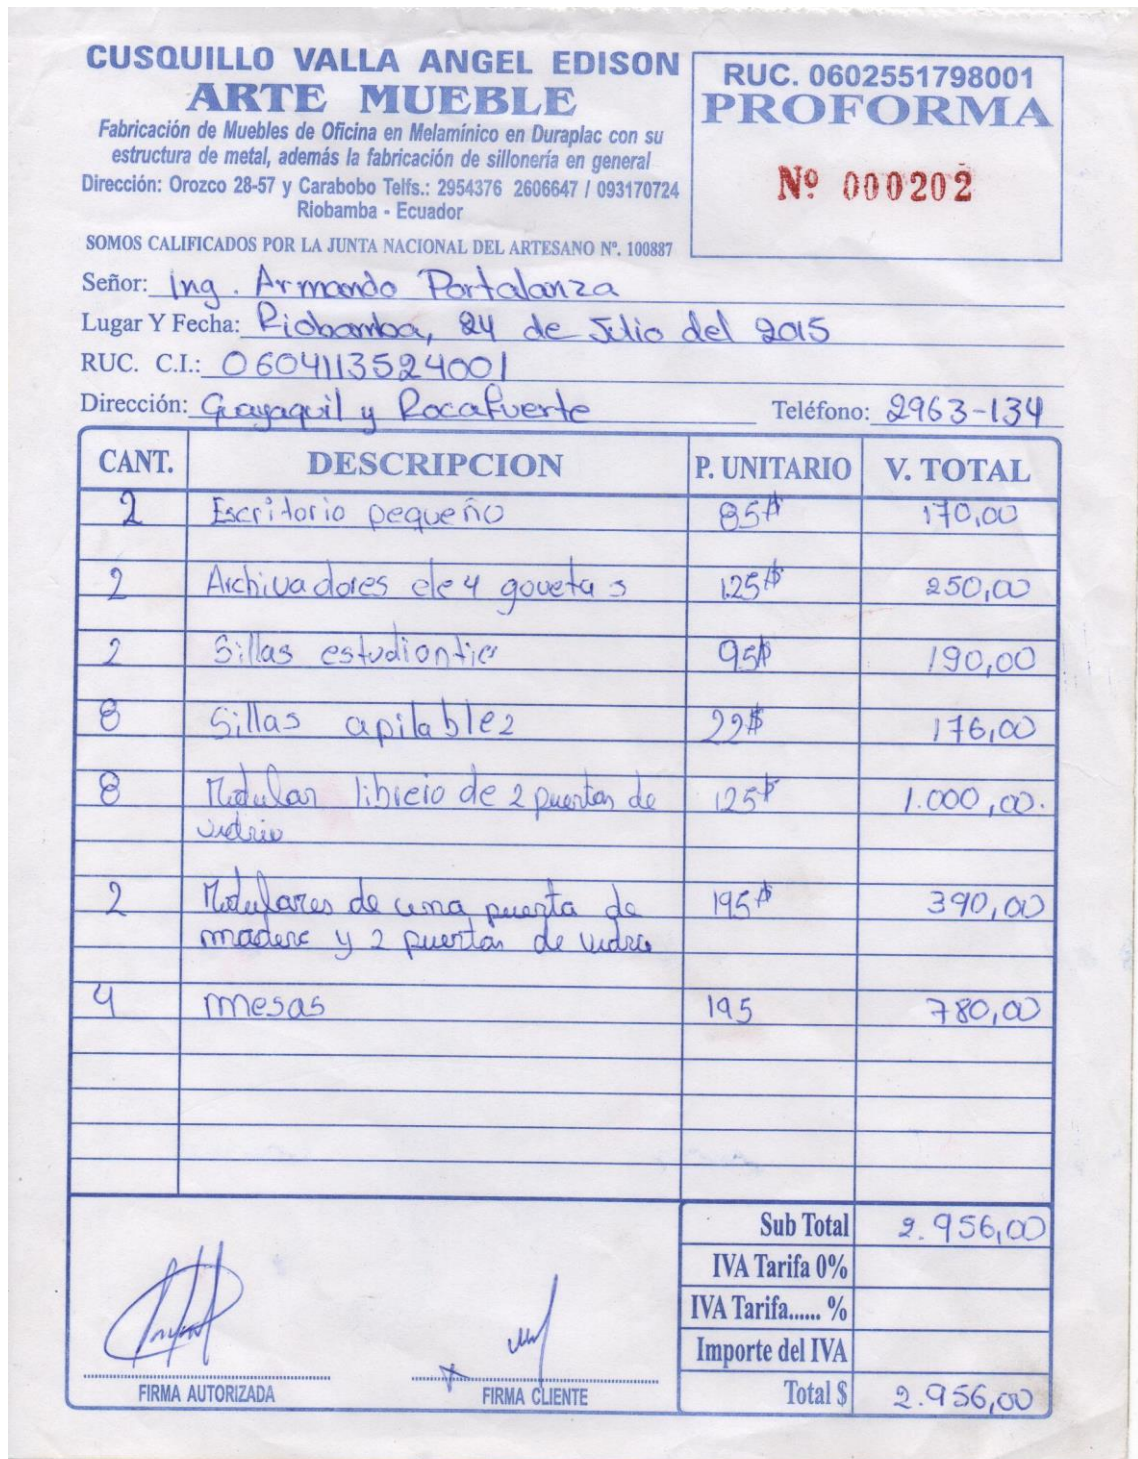 CUSQUILLO VALLA ANGEL EDISON
ARTE MUEBLE
Fabricación de Muebles de Oficina en Melamínico en Duraplac con su
estructura de metal, además la fabricación de sillonería en general
Dirección: Orozco 28-57 y Carabobo Telfs.: 2954376 2606647 / 093170724
Riobamba - Ecuador
SOMOS CALIFICADOS POR LA JUNTA NACIONAL DEL ARTESANO Nº. 100887
RUC. 0602551798001
PROFORMA
Nº 000202
Señor: Ing. Armando Portalanza
Lugar Y Fecha: Riobamba, 24 de Julio del 2015
RUC. C.I.: 0604113524001
Dirección: Guayaquil y Rocafuerte Teléfono: 2963-134
CANT. DESCRIPCION P. UNITARIO V. TOTAL
2 Escritorio pequeño 85$ 170,00
2 Archivadores de 4 govetas 125$ 250,00
2 Sillas estudiantic 95$ 190,00
8 Sillas apilables 22$ 176,00
8 Modular librero de 2 puertas de 125$ 1.000,00.
vidrio
2 Modulares de una puerta de 195$ 390,00
madera y 2 puertas de vidrio
4 mesas 195 780,00
Sub Total 2.956,00
IVA Tarifa 0%
IVA Tarifa...... %
Importe del IVA
Total $ 2.956,00
FIRMA AUTORIZADA FIRMA CLIENTE